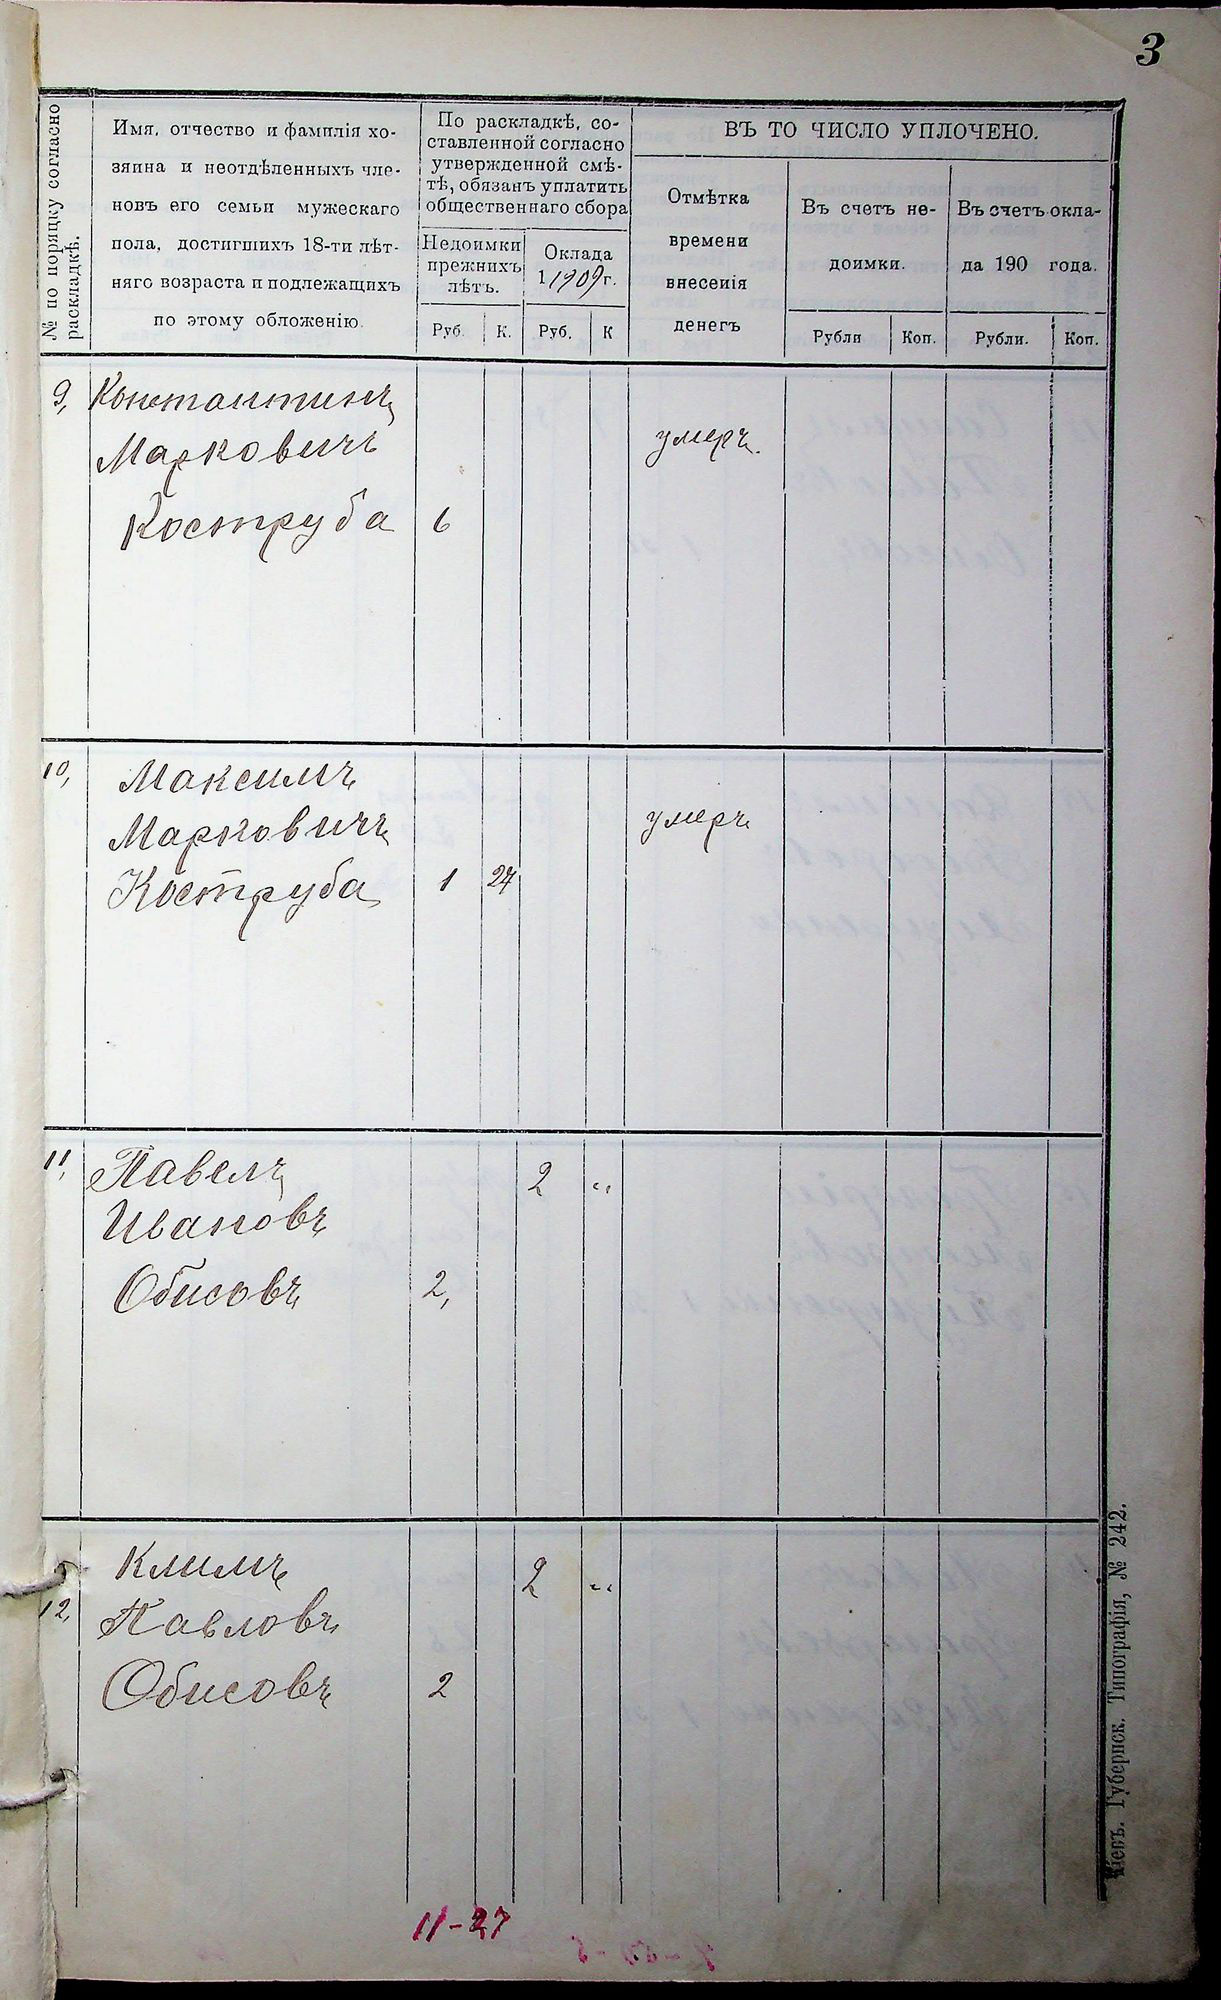 3
№ по порядку согласно
раскладкѣ.
Имя, отчество и фамилія хо-
зяина и неотдѣленныхъ чле-
новъ его семьи мужескаго
пола, достигшихъ 18-ти лѣт-
няго возраста и подлежащихъ
по этому обложенію.
По раскладкѣ, со-
ставленной согласно
утвержденной смѣ-
тѣ, обязанъ уплатить
общественнаго сбора
Недоимки
прежнихъ
лѣтъ.
Оклада
1 1909 г.
Руб. К. Руб. К
ВЪ ТО ЧИСЛО УПЛОЧЕНО.
Отмѣтка
времени
внесенія
денегъ
Въ счетъ не-
доимки.
Въ счетъ окла-
да 190 года.
Рубли Коп. Рубли. Коп.
9, Константинъ
Марковичъ умеръ.
Коструба 6
10, Максимъ
Марковичъ умеръ
Коструба 1 27
11, Павелъ 2 "
Ивановъ
Обисовъ 2,
Климъ 2 "
12, Павловъ
Обисовъ 2
11-27
Кіевъ. Губернск. Типографія, № 242.